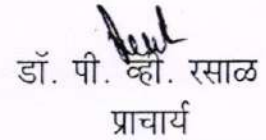 डॉ. पी. व्ही. रसाळ
प्राचार्य